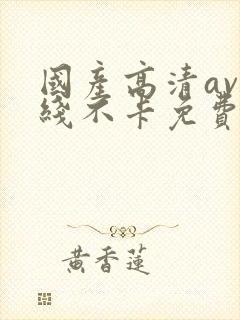 國產高清av
綫不卡免費
黃香蓮